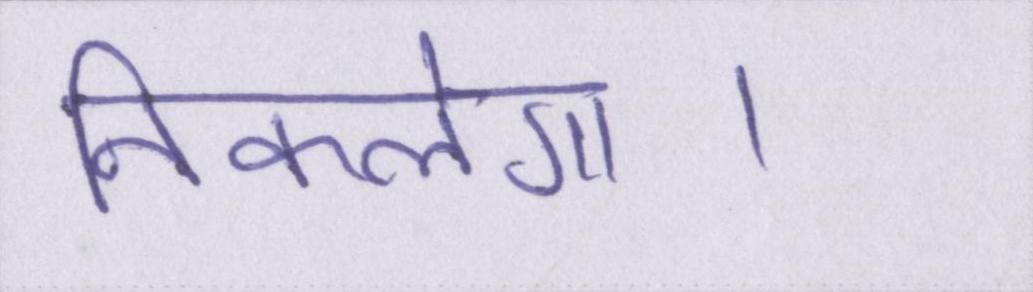 निकलेगा ।